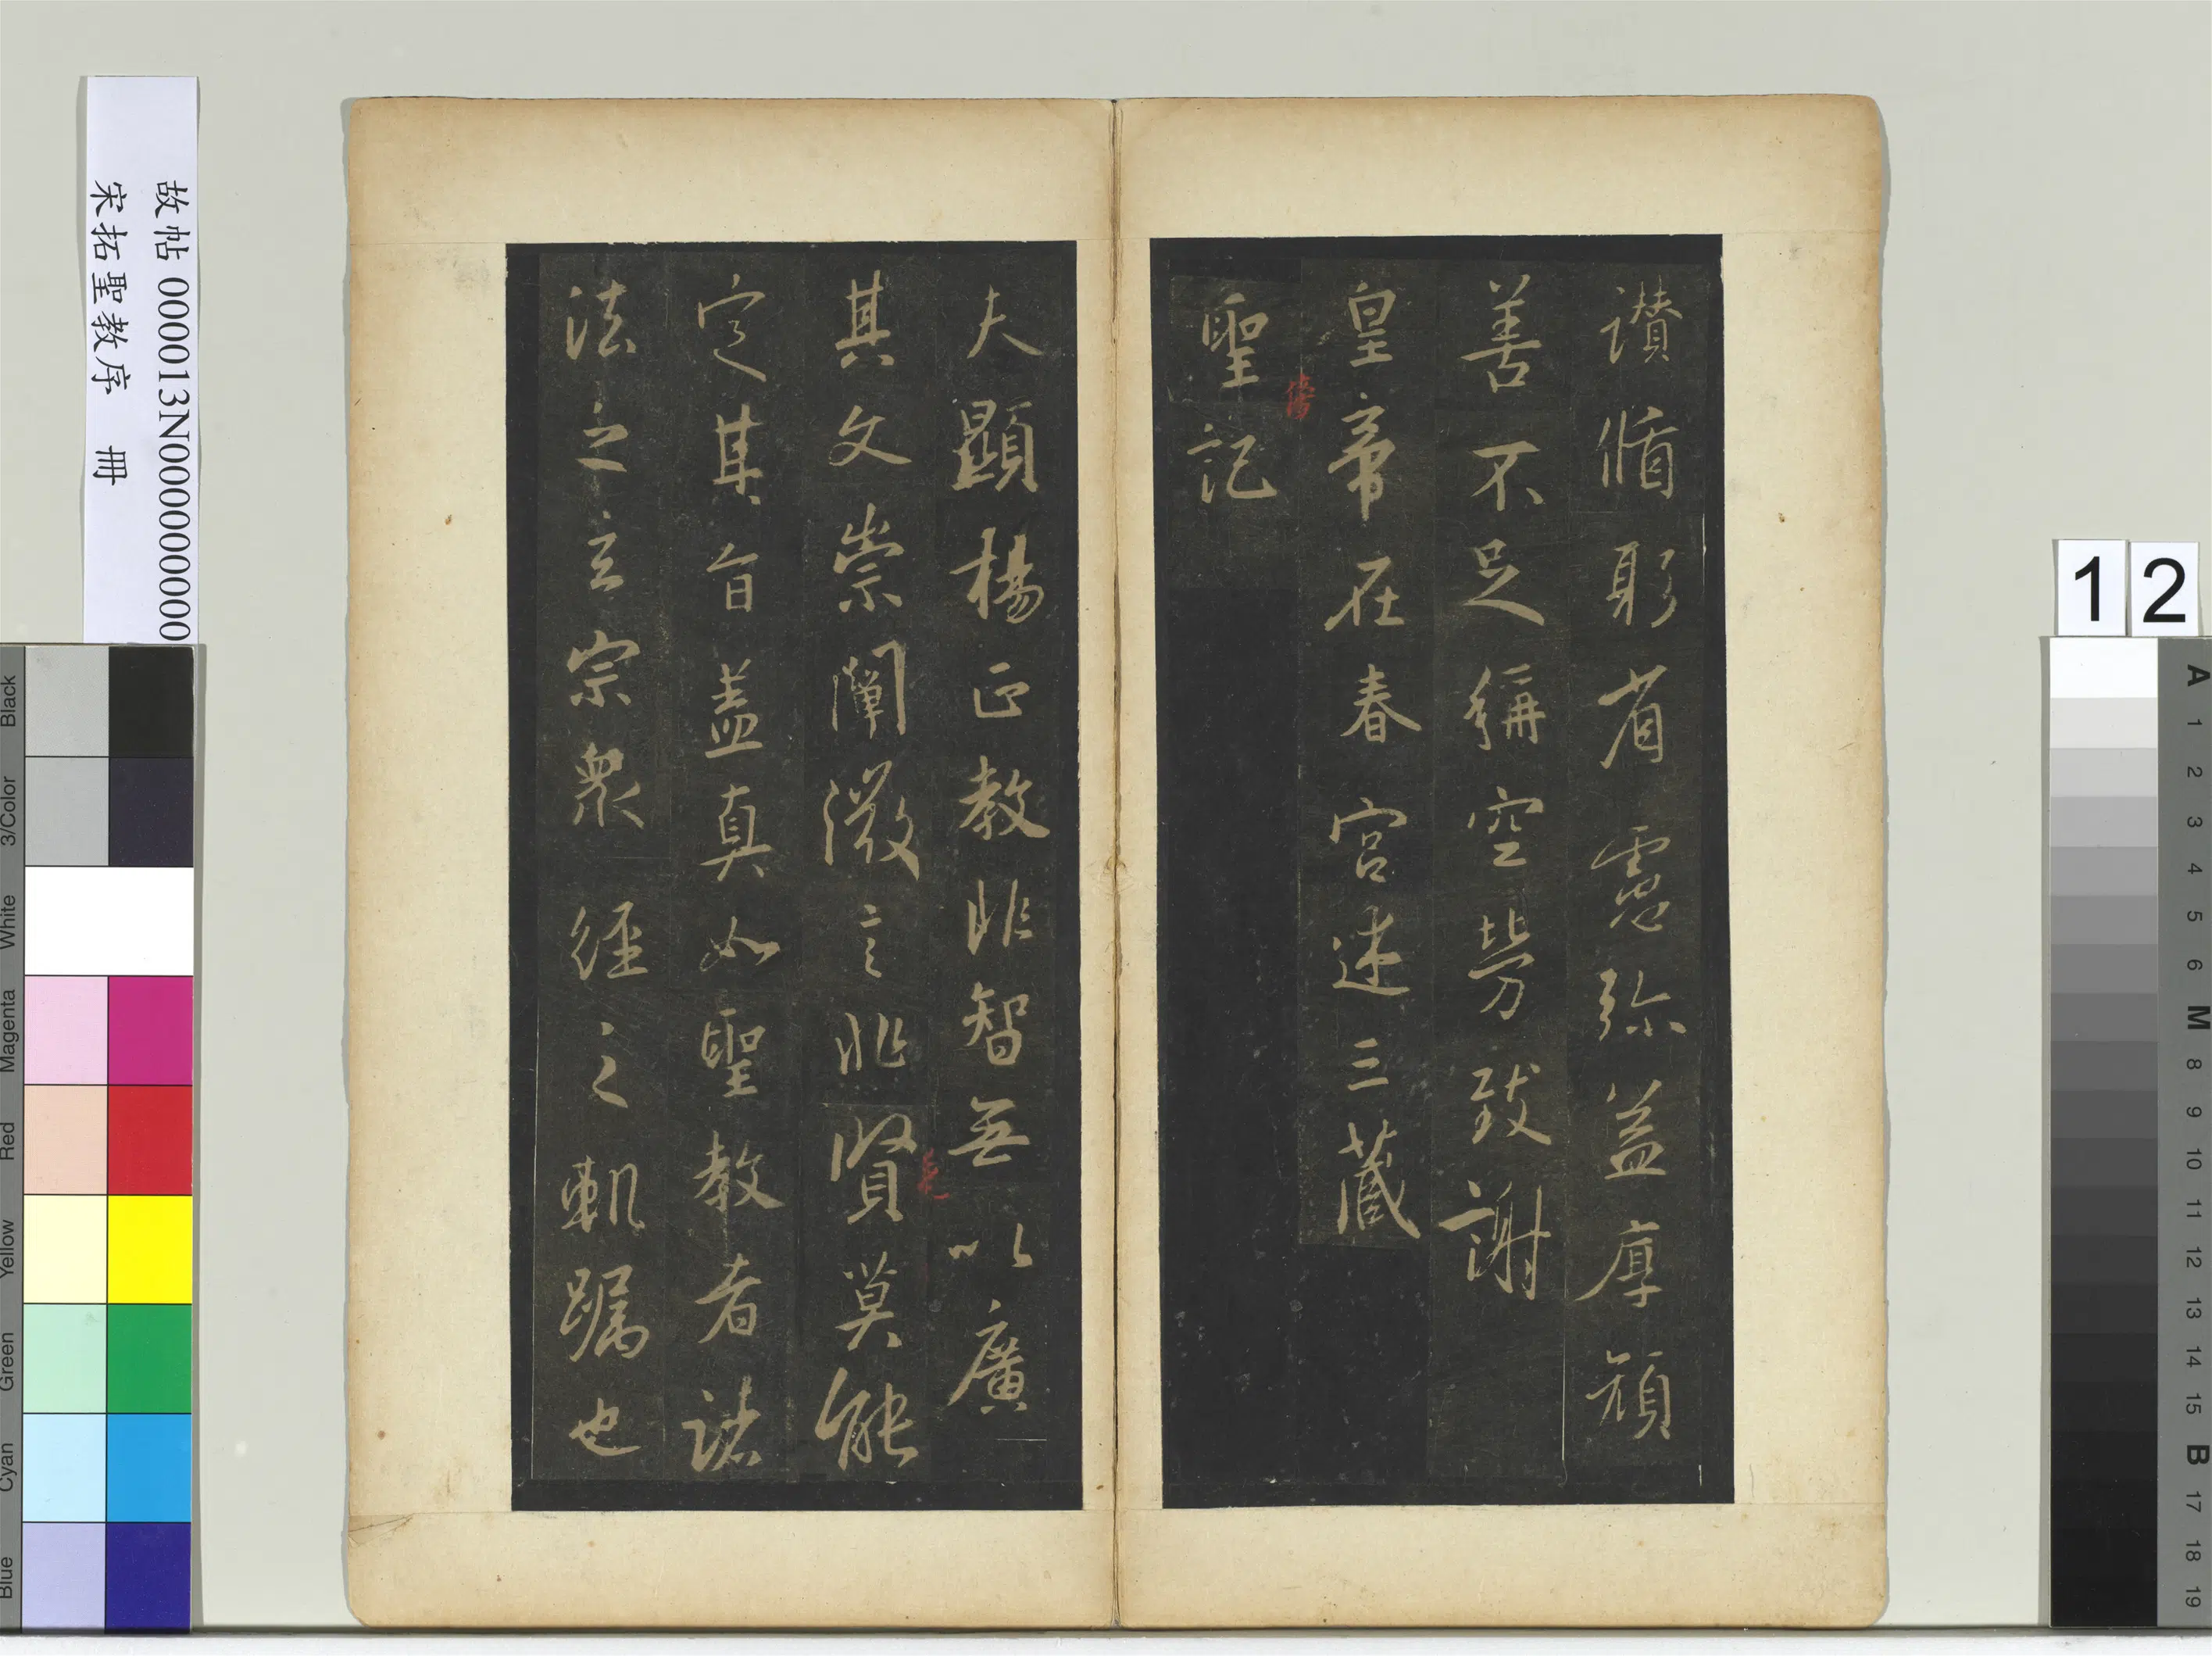 讃脩躬省慮弥益厚顔
善不足稱空勞致謝
皇帝在春宮述三藏
聖記
夫顯楊正教非智無以廣
其文崇闡微言非賢莫能
定其旨盖真如聖教者諸
法之玄宗衆經之軌躅也
故帖 000013N000000000
宋拓聖教序 冊
12
Black
3/Color
White
Magenta
Red
Yellow
Green
Cyan
Blue
A
1
2
3
4
5
6
M
8
9
10
11
12
13
14
15
B
17
18
19